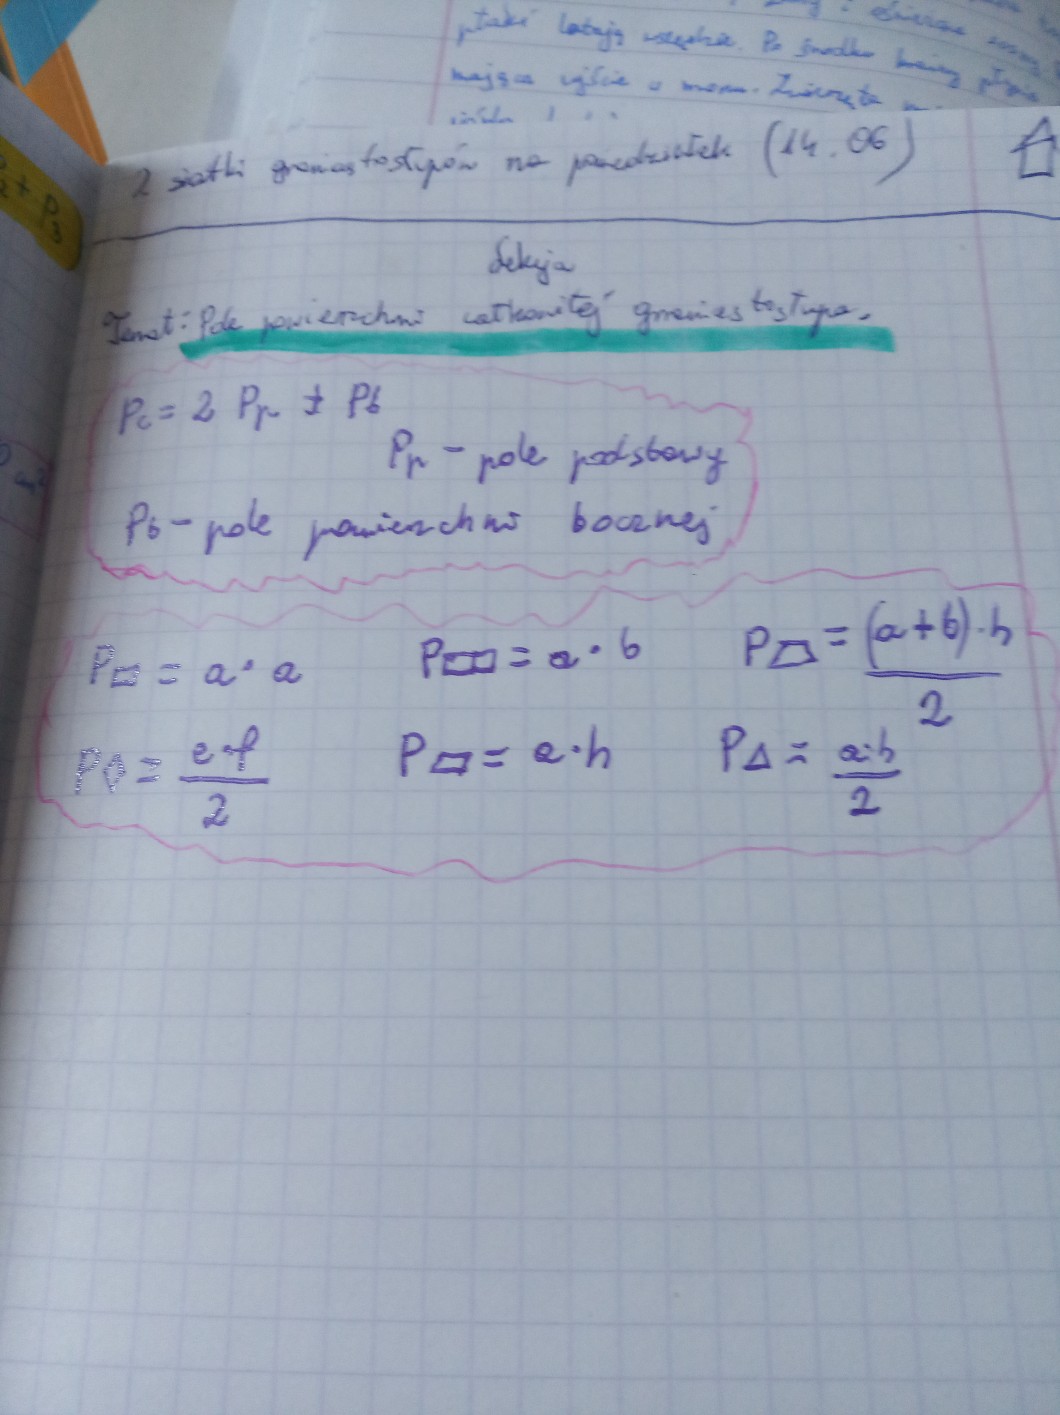 ptaki latają wszędzie. Po środku
mająca ujście w morzu. Zwierzęta
2 siatki graniastosłupów na poniedziałek (14.06)
Lekcja
Temat: Pole powierzchni całkowitej graniastosłupa.
Pc = 2 Pp + Pb
Pp - pole podstawy
Pb - pole powierzchni bocznej
P□ = a · a
P▭ = a · b
P⏢ = (a+b)·h / 2
P◊ = e·f / 2
P▱ = a·h
P△ = a·h / 2